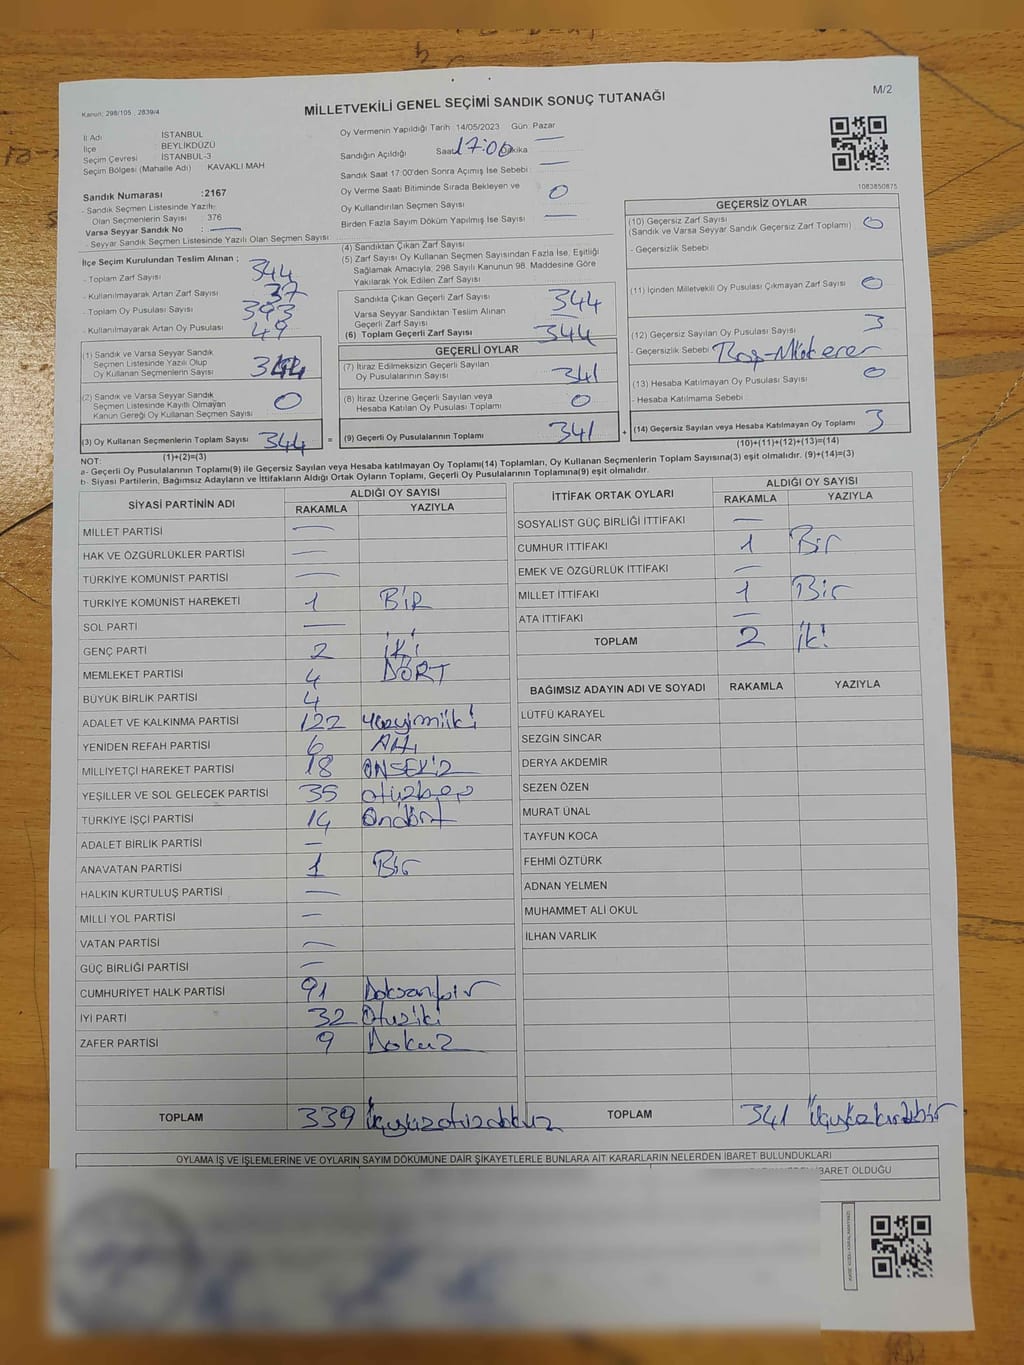 Kanun: 298/105 , 2839/4
M/2
MİLLETVEKİLİ GENEL SEÇİMİ SANDIK SONUÇ TUTANAĞI
İl Adı : İSTANBUL
İlçe : BEYLİKDÜZÜ
Seçim Çevresi : İSTANBUL-3
Seçim Bölgesi (Mahalle Adı) KAVAKLI MAH
Sandık Numarası :2167
- Sandık Seçmen Listesinde Yazılı
Olan Seçmenlerin Sayısı : 376
Varsa Seyyar Sandık No : —
- Seyyar Sandık Seçmen Listesinde Yazılı Olan Seçmen Sayısı
Oy Vermenin Yapıldığı Tarih :14/05/2023 Gün: Pazar
Sandığın Açıldığı Saat 17:00 Dakika —
Sandık Saat 17:00'den Sonra Açımış İse Sebebi : —
Oy Verme Saati Bitiminde Sırada Bekleyen ve
Oy Kullandırılan Seçmen Sayısı 0
Birden Fazla Sayım Döküm Yapılmış İse Sayısı —
1083850875
İlçe Seçim Kurulundan Teslim Alınan ;
- Toplam Zarf Sayısı 344
- Kullanılmayarak Artan Zarf Sayısı 37
- Toplam Oy Pusulası Sayısı 393
- Kullanılmayarak Artan Oy Pusulası 49
(1) Sandık ve Varsa Seyyar Sandık
Seçmen Listesinde Yazılı Olup
Oy Kullanan Seçmenlerin Sayısı 344
(2) Sandık ve Varsa Seyyar Sandık
Seçmen Listesinde Kayıtlı Olmayan
Kanun Gereği Oy Kullanan Seçmen Sayısı 0
(3) Oy Kullanan Seçmenlerin Toplam Sayısı 344
(1)+(2)=(3)
(4) Sandıktan Çıkan Zarf Sayısı
(5) Zarf Sayısı Oy Kullanan Seçmen Sayısından Fazla İse, Eşitliği
Sağlamak Amacıyla, 298 Sayılı Kanunun 98. Maddesine Göre
Yakılarak Yok Edilen Zarf Sayısı
Sandıkta Çıkan Geçerli Zarf Sayısı 344
Varsa Seyyar Sandıktan Teslim Alınan
Geçerli Zarf Sayısı —
(6) Toplam Geçerli Zarf Sayısı 344
GEÇERLİ OYLAR
(7) İtiraz Edilmeksizin Geçerli Sayılan
Oy Pusulalarının Sayısı 341
(8) İtiraz Üzerine Geçerli Sayılan veya
Hesaba Katılan Oy Pusulası Toplamı 0
= (9) Geçerli Oy Pusulalarının Toplamı 341 +
GEÇERSİZ OYLAR
(10) Geçersiz Zarf Sayısı
(Sandık ve Varsa Seyyar Sandık Geçersiz Zarf Toplamı) 0
- Geçersizlik Sebebi
(11) İçinden Milletvekili Oy Pusulası Çıkmayan Zarf Sayısı 0
(12) Geçersiz Sayılan Oy Pusulası Sayısı 3
- Geçersizlik Sebebi
(13) Hesaba Katılmayan Oy Pusulası Sayısı 0
- Hesaba Katılmama Sebebi
(14) Geçersiz Sayılan veya Hesaba Katılmayan Oy Toplamı 3
(10)+(11)+(12)+(13)=(14)
NOT:
a- Geçerli Oy Pusulalarının Toplamı(9) ile Geçersiz Sayılan veya Hesaba katılmayan Oy Toplamı(14) Toplamları, Oy Kullanan Seçmenlerin Toplam Sayısına(3) eşit olmalıdır. (9)+(14)=(3)
b- Siyasi Partilerin, Bağımsız Adayların ve İttifakların Aldığı Ortak Oyların Toplamı, Geçerli Oy Pusulalarının Toplamına(9) eşit olmalıdır.
SİYASİ PARTİNİN ADI ALDIĞI OY SAYISI
RAKAMLA YAZIYLA
MİLLET PARTİSİ —
HAK VE ÖZGÜRLÜKLER PARTİSİ —
TÜRKİYE KOMÜNİST PARTİSİ —
TÜRKİYE KOMÜNİST HAREKETİ 1 BİR
SOL PARTİ —
GENÇ PARTİ 2 İKİ
MEMLEKET PARTİSİ 4 DÖRT
BÜYÜK BİRLİK PARTİSİ 4
ADALET VE KALKINMA PARTİSİ 122 yüzyirmiiki
YENİDEN REFAH PARTİSİ 6 Altı
MİLLİYETÇİ HAREKET PARTİSİ 18 ONSEKİZ
YEŞİLLER VE SOL GELECEK PARTİSİ 35 otuzbeş
TÜRKİYE İŞÇİ PARTİSİ 14 Ondört
ADALET BİRLİK PARTİSİ —
ANAVATAN PARTİSİ 1 Bir
HALKIN KURTULUŞ PARTİSİ —
MİLLİ YOL PARTİSİ —
VATAN PARTİSİ —
GÜÇ BİRLİĞİ PARTİSİ —
CUMHURİYET HALK PARTİSİ 91 Doksanbir
İYİ PARTİ 32 Otuziki
ZAFER PARTİSİ 9 Dokuz
TOPLAM 339 Üçyüzotuzdokuz
İTTİFAK ORTAK OYLARI ALDIĞI OY SAYISI
RAKAMLA YAZIYLA
SOSYALİST GÜÇ BİRLİĞİ İTTİFAKI —
CUMHUR İTTİFAKI 1 Bir
EMEK VE ÖZGÜRLÜK İTTİFAKI —
MİLLET İTTİFAKI 1 Bir
ATA İTTİFAKI —
TOPLAM 2 İki
BAĞIMSIZ ADAYIN ADI VE SOYADI RAKAMLA YAZIYLA
LÜTFÜ KARAYEL
SEZGİN SİNCAR
DERYA AKDEMİR
SEZEN ÖZEN
MURAT ÜNAL
TAYFUN KOCA
FEHMİ ÖZTÜRK
ADNAN YELMEN
MUHAMMET ALİ OKUL
İLHAN VARLIK
TOPLAM 341 Üçyüzkırkbir
OYLAMA İŞ VE İŞLEMLERİNE VE OYLARIN SAYIM DÖKÜMÜNE DAİR ŞİKAYETLERLE BUNLARA AİT KARARLARIN NELERDEN İBARET BULUNDUKLARI
İBARET OLDUĞU